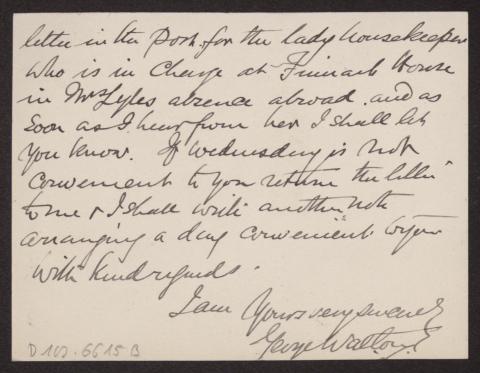 letter in the Post. for the lady housekeeper
who is in charge at Finnart House
in Mrs Lyles absence abroad. and as
soon as I hear from her I shall let
you know. If Wednesday is not
convenient to you return the letter
to me & I shall write another note
arranging a day convenient to you
with kind regards.
I am Yours very sincerely
George Walton
D 107. 6615 B